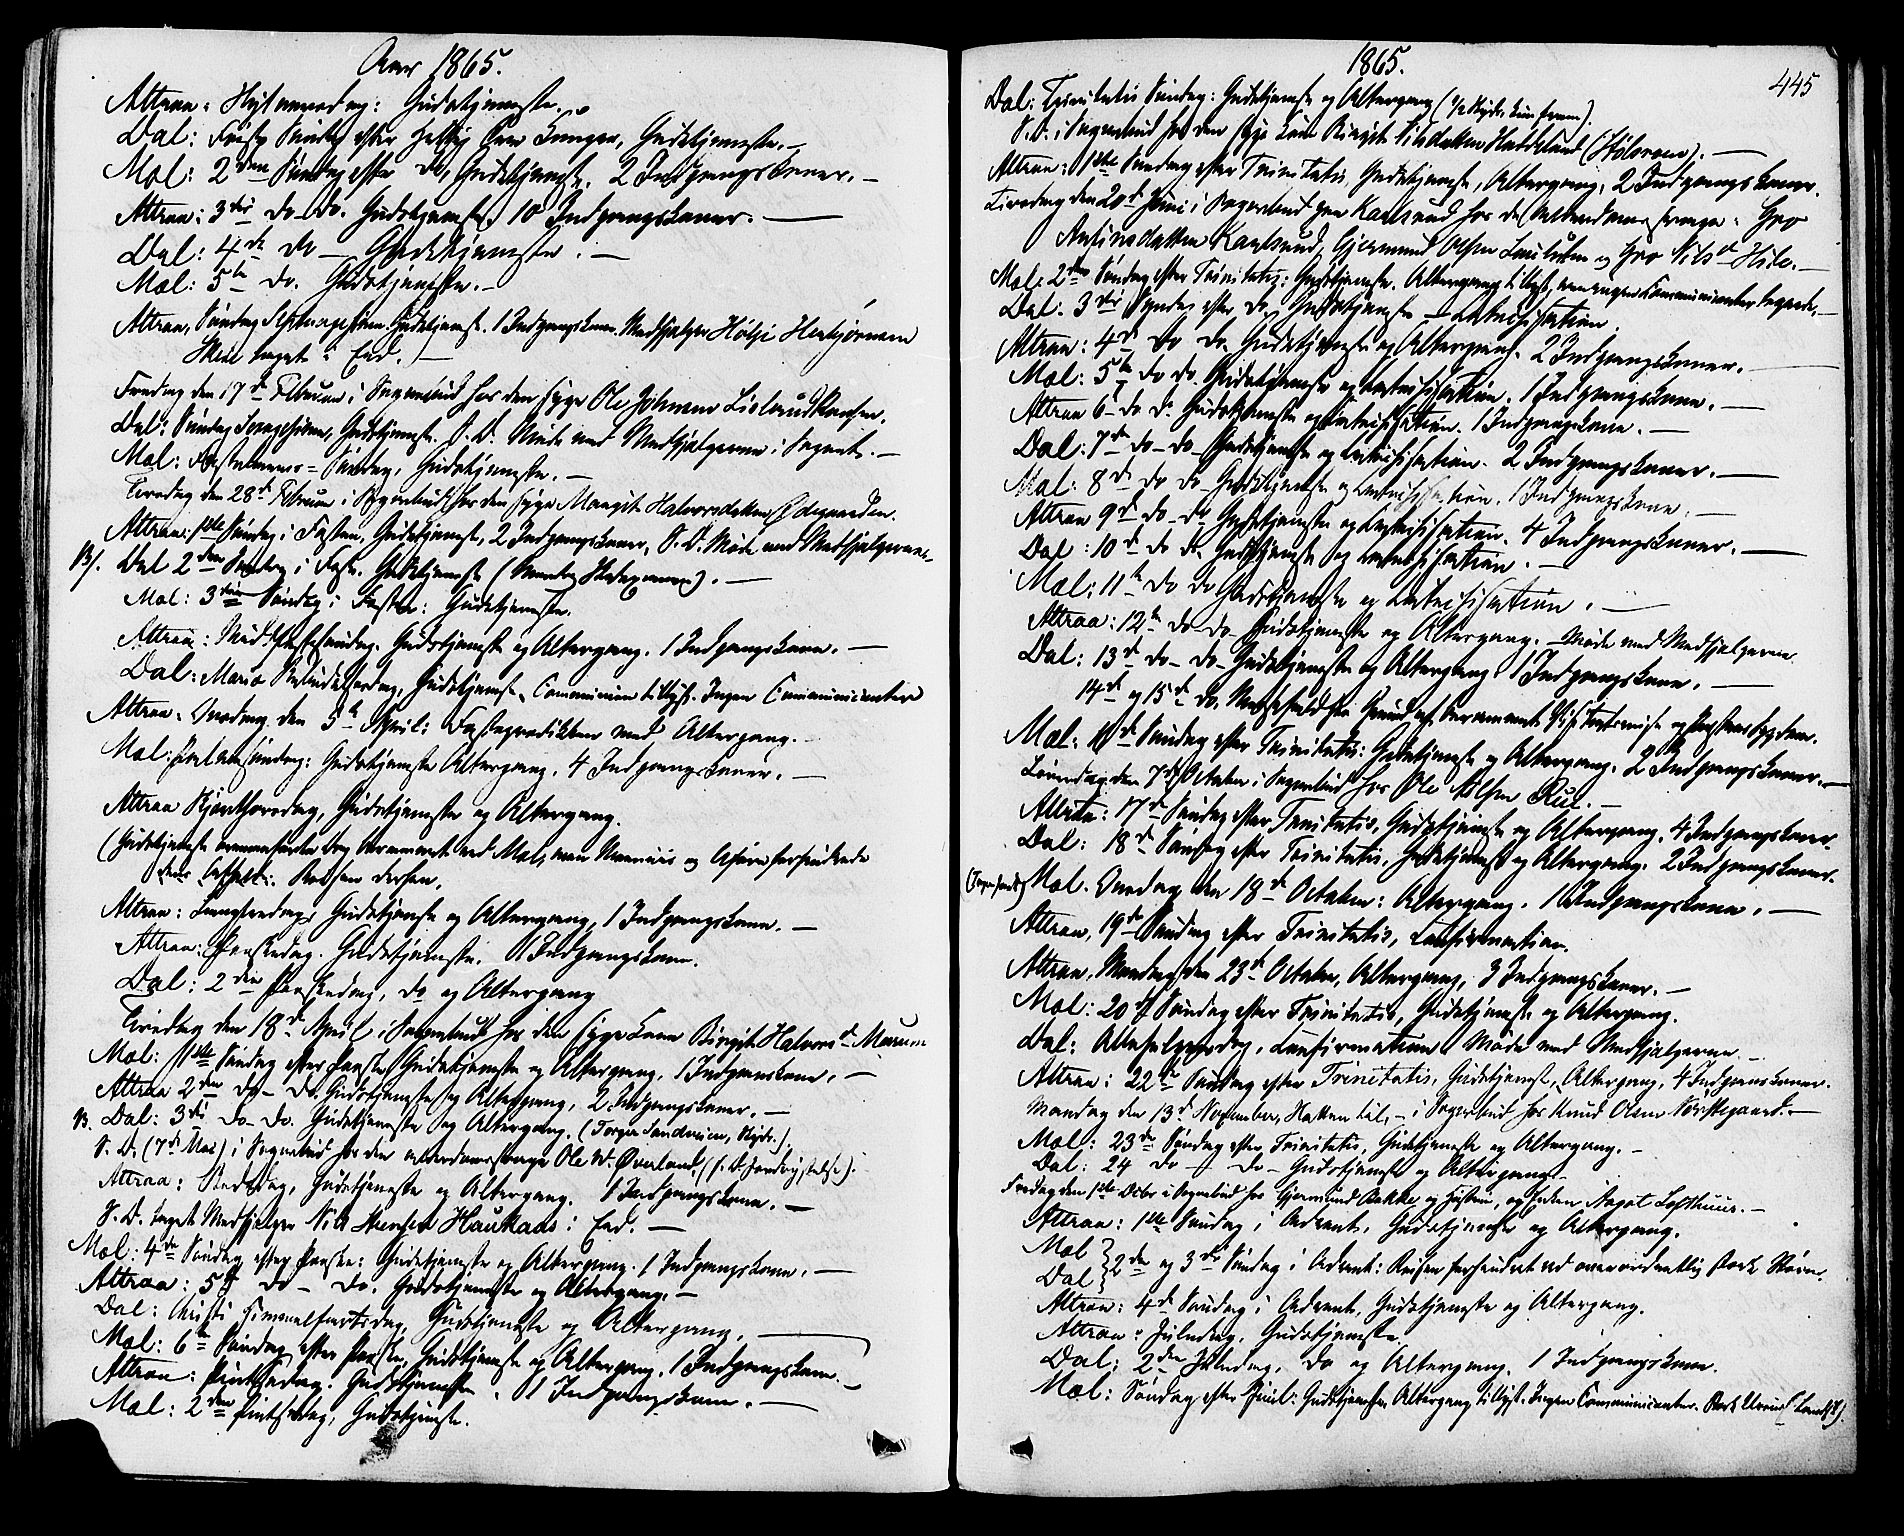 Aar 1865.
Attraa: Nytaarsdag: Gudstjeneste.
Dal: Første Søndag efter Hellig tre Konger, Gudstjeneste. —
Mæl: 2den Søndag efter do, Gudstjeneste. 2 Indgangskoner. —
Attraa: 3die do do. Gudstjeneste. 10 Indgangskoner. —
Dal: 4de do — Gudstjeneste. —
Mæl: 5te do. Gudstjeneste. —
Attraa, Søndag Septuagesima Gudstjeneste. 1 Indgangskone. Medhjælper Høljé Herbjørnsen
taget i Eed. —
Fredag den 17de Februar i Sognebud hos den syge Ole Johnsen
Dal: Søndag Sexagesima, Gudstjeneste. S. D. Møde med Medhjælperne i Sognet. —
Mæl: Fastelavns-Søndag, Gudstjeneste. —
Tirsdag den 28de Februar i Sognebud hos den syge Margit Halvorsdatter Ødegaarden.
Attraa: 1ste Søndag i Fasten, Gudstjeneste, 2 Indgangskoner, S. D. Møde med Medhjælperne. —
Dal 2den Søndag i Faste. Gudstjeneste —
Mæl: 3die Søndag i Faste: Gudstjeneste.
Attraa: Midfastesøndag. Gudstjeneste og Altergang. 1 Indgangskone. —
Dal: Mariæ Bebudelsesdag, Gudstjeneste, Communion tillyst. Ingen Communicantere
Attraa: Onsdag den 5te April: Fasteprædiken med Altergang. —
Mæl: Palmesøndag: Gudstjeneste Altergang. 4 Indgangskoner. —
Attraa Skjærthorsdag, Gudstjeneste og Altergang.
(Gudstjeneste Dag berammet ved Mæl, men og forhindrede
Reisen dersen.
Attraa: Langfredag, Gudstjeneste og Altergang, 1 Indgangskone. —
Attraa: Paaskedag. Gudstjeneste. 1 Indgangskone.
Dal: 2den Paaskedag, do og Altergang
Tirsdag den 18de April i Sognebud hos den syge Kone Birgit Halvorsd.
Mæl: 1ste Søndag efter Paaske Gudstjeneste og Altergang, 1 Indgangskone. —
Attraa 2den do — do. Gudstjeneste og Altergang, 2 Indgangskoner. —
Dal: 3die do do. Gudstjeneste og Altergang.
S. D. (7de Mai) i Sognebud hos den alderdomssvage Ole W. Øverland.
Attraa: Bededag, Gudstjeneste og Altergang. 1 Indgangskone. —
S. D. taget Medhjælper Nils Haukaas i Eed. —
Mæl: 4de Søndag efter Paaske: Gudstjeneste og Altergang. 1 Indgangskone. —
Attraa: 5te do — do. Gudstjeneste og Altergang. —
Dal: Christi Himmelfartsdag, Gudstjeneste og Altergang. —
Mæl: 6te Søndag efter Paaske, Gudstjeneste og Altergang. 1 Indgangskone. —
Attraa: Pintsedag. Gudstjeneste. 1 Indgangskone. —
Mæl: 2den Pintsedag, Gudstjeneste.
1865.
445
Dal: Trinitatis Søndag: Gudstjeneste og Altergang
S. D. i Sognebud hos den syge Kone Birgit Haddeland
Attraa: 1ste Søndag efter Trinitatis Gudstjeneste, Altergang, 2 Indgangskoner.
Tirsdag den 20de Juni i Sognebud paa Kaasrud hos de alderdomssvage: Gro
Kaasrud, Gjermund Olsen og Gro Nilsd.
Mæl: 2den Søndag efter Trinitatis: Gudstjeneste. Altergang tillyst, men ingen Communicanter
Dal: 3die Søndag efter do, Gudstjeneste — Catechisation.
Attraa: 4de do do. Gudstjeneste og Altergang. 2 Indgangskoner. —
Mæl: 5te do do. Gudstjeneste og Catechisation. 1 Indgangskone. —
Attraa 6te do do. Gudstjeneste og Catechisation. 1 Indgangskone. —
Dal: 7de do — do — Gudstjeneste og Catechisation. 2 Indgangskoner. —
Mæl: 8de do do Gudstjeneste og Catechisation. 1 Indgangskone. —
Attraa 9de do — do Gudstjeneste og Catechisation. 4 Indgangskoner. —
Dal: 10de do do. Gudstjeneste og Catechisation. —
Mæl: 11te do do Gudstjeneste og Catechisation. —
Attraa: 12te do — do — Gudstjeneste og Altergang. — Møde med Medhjælperne.
Dal: 13de do — do — Gudstjeneste og Altergang 1 Indgangskone. —
14de og 15de do. Messefald paa Grund af berammet og
Mæl: 16de Søndag efter Trinitatis: Gudstjeneste og Altergang. 2 Indgangskoner. —
Løverdag den 7de October i Sognebud hos Ole Rui. —
Attraa: 17de Søndag efter Trinitatis, Gudstjeneste og Altergang. 4 Indgangskoner.
Dal: 18de Søndag efter Trinitatis, Gudstjeneste og Altergang. 2 Indgangskoner.
Mæl. Onsdag den 18de October: Altergang. 1 Indgangskone. —
Attraa, 19de Søndag efter Trinitatis, Confirmation.
Attraa, Mandag den 23de October, Altergang, 3 Indgangskoner. —
Mæl: 20de Søndag efter Trinitatis, Gudstjeneste og Altergang.
Dal: Allehelgensdag, Confirmation. Møde med Medhjælperne. —
Attraa: 22de Søndag efter Trinitatis, Gudstjeneste, Altergang, 4 Indgangskoner.
Mandag den 13de November, — i Sognebud hos Knud Olsen —
Mæl: 23de Søndag efter Trinitatis, Gudstjeneste og Altergang. —
Dal: 24 do — do — Gudstjeneste og Altergang. —
Fredag den 1ste Decbr i Sognebud hos Gjermund Bakke og Hustru, og Enken Aagot Lofthuus. —
Attraa: 1ste Søndag i Advent, Gudstjeneste og Altergang.
Mæl
Dal } 2den og 3die Søndag i Advent: Reisen forhindret ved overordentlig stærk Storm.
Attraa: 4de Søndag i Advent, Gudstjeneste og Altergang.
Attraa: Juledag, Gudstjeneste.
Dal: 2den Juledag, do og Altergang. 1 Indgangskone.
Mæl: Søndag efter Juul: Gudstjeneste, Altergang tillyst. Ingen Communicanter.